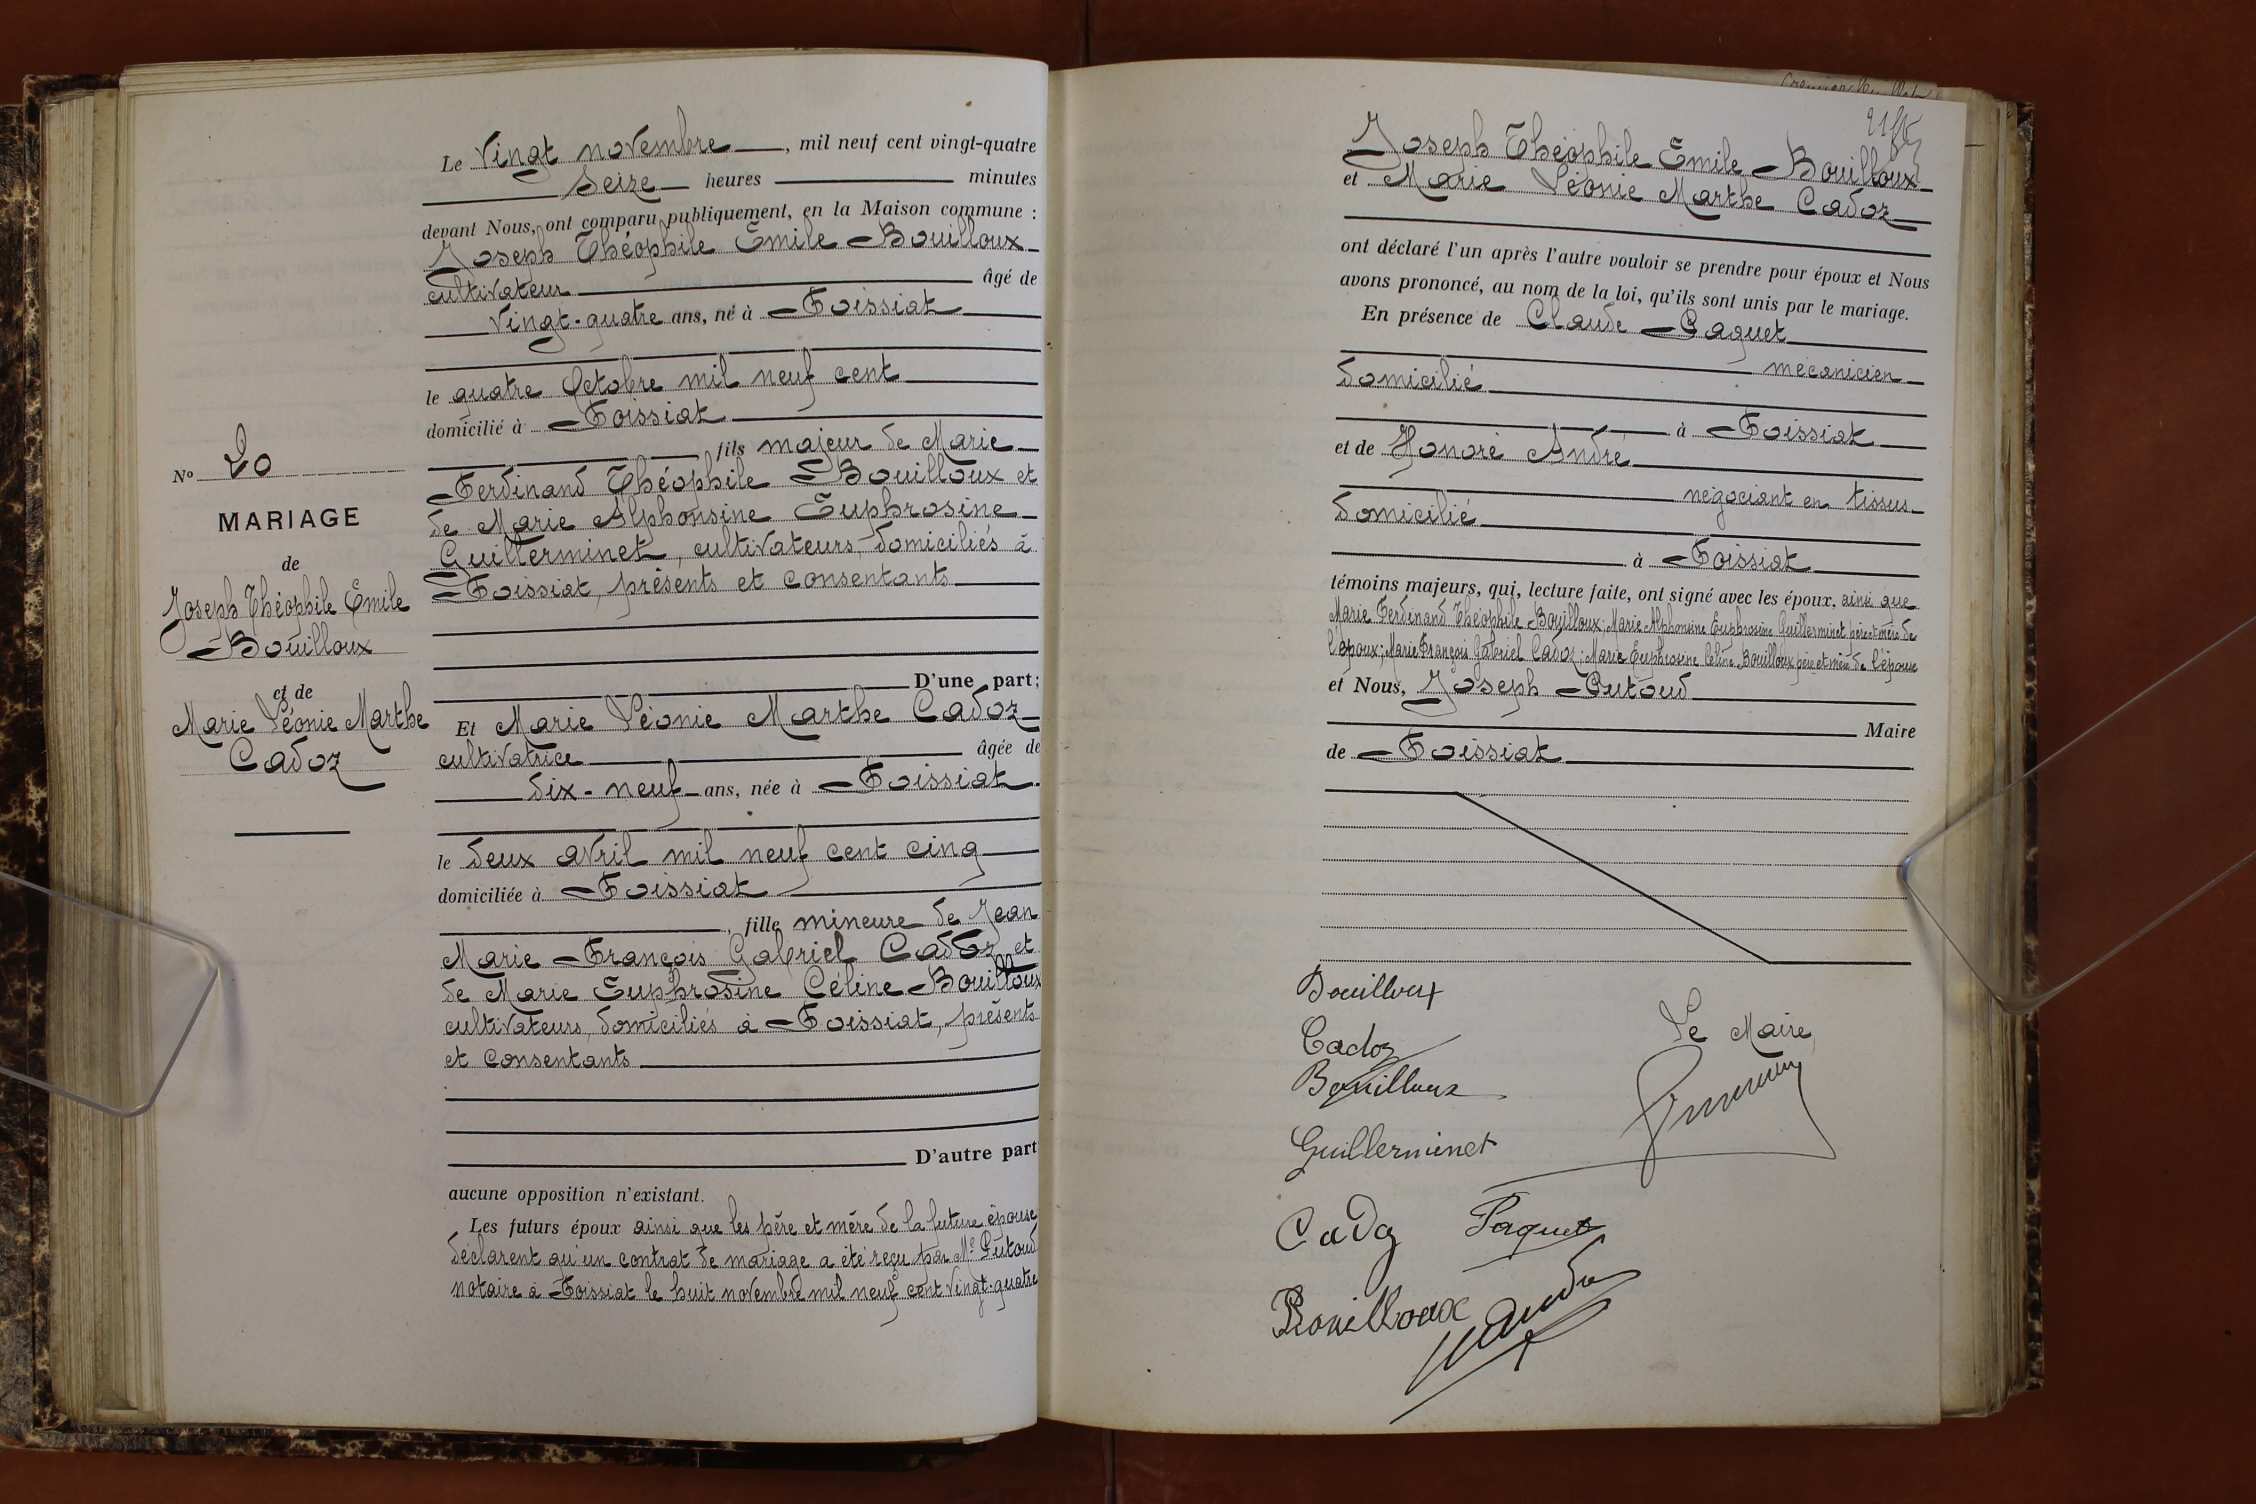 Le vingt novembre, mil neuf cent vingt-quatre
seize heures minutes
devant Nous, ont comparu publiquement, en la Maison commune :
Joseph Théophile Emile Bouilloux
cultivateur âgé de
vingt-quatre ans, né à Foissiat
le quatre Octobre mil neuf cent
domicilié à Foissiat
fils majeur de Marie
Ferdinand Théophile Bouilloux et
de Marie Alphonsine Euphrosine
Guillerminet, cultivateurs, domiciliés à
Foissiat, présents et consentants
D'une part;
Et Marie Léonie Marthe Cadoz
cultivatrice âgée de
dix-neuf ans, née à Foissiat
le deux avril mil neuf cent cinq
domiciliée à Foissiat
, fille mineure de Jean
Marie François Gabriel Cadoz et
de Marie Euphrosine Céline Bouilloux
cultivateurs, domiciliés à Foissiat, présents
et consentants
D'autre part
aucune opposition n'existant.
Les futurs époux ainsi que les père et mère de la future épouse
déclarent qu'un contrat de mariage a été reçu par Me Putoud
notaire à Foissiat le huit novembre mil neuf cent vingt-quatre
No 20
MARIAGE
de
Joseph Théophile Emile
Bouilloux
et de
Marie Léonie Marthe
Cadoz
Joseph Théophile Emile Bouilloux
et Marie Léonie Marthe Cadoz
ont déclaré l'un après l'autre vouloir se prendre pour époux et Nous
avons prononcé, au nom de la loi, qu'ils sont unis par le mariage.
En présence de Claude Paquet
mécanicien
domicilié
à Foissiat
et de Honoré André
négociant en tissus
domicilié
à Foissiat
témoins majeurs, qui, lecture faite, ont signé avec les époux, ainsi que
Marie Ferdinand Théophile Bouilloux; Marie Alphonsine Euphrosine Guillerminet père et mère de
l'époux; Marie François Gabriel Cadoz; Marie Euphrosine Céline Bouilloux père et mère de l'épouse
et Nous, Joseph Putoud
Maire
de Foissiat
Bouilloux
Cadoz
Le Maire,
Bouilloux
Guillerminet
Cadoz Paquet
Bouilloux
André